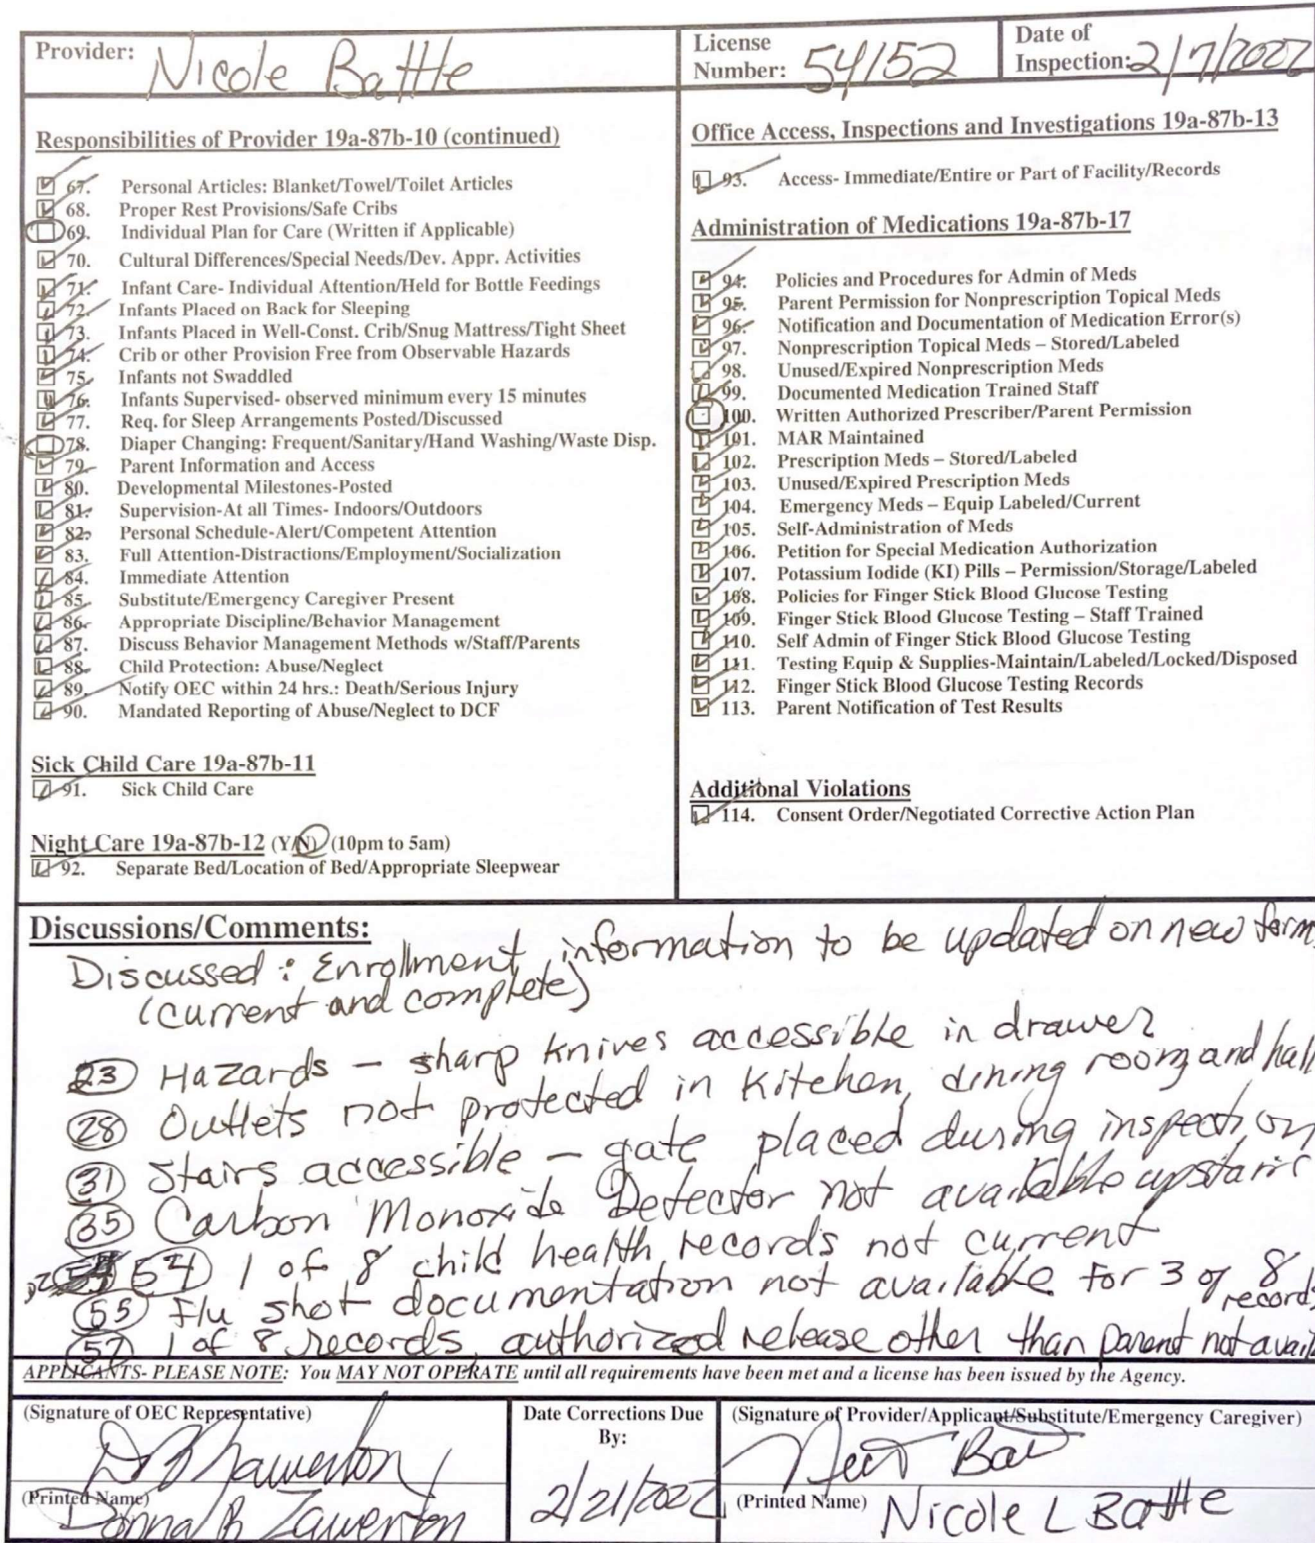 Provider: Nicole Battle
License Number: 54152
Date of Inspection: 2/7/2022
Responsibilities of Provider 19a-87b-10 (continued)
67. Personal Articles: Blanket/Towel/Toilet Articles
68. Proper Rest Provisions/Safe Cribs
69. Individual Plan for Care (Written if Applicable)
70. Cultural Differences/Special Needs/Dev. Appr. Activities
71. Infant Care- Individual Attention/Held for Bottle Feedings
72. Infants Placed on Back for Sleeping
73. Infants Placed in Well-Const. Crib/Snug Mattress/Tight Sheet
74. Crib or other Provision Free from Observable Hazards
75. Infants not Swaddled
76. Infants Supervised- observed minimum every 15 minutes
77. Req. for Sleep Arrangements Posted/Discussed
78. Diaper Changing: Frequent/Sanitary/Hand Washing/Waste Disp.
79. Parent Information and Access
80. Developmental Milestones-Posted
81. Supervision-At all Times- Indoors/Outdoors
82. Personal Schedule-Alert/Competent Attention
83. Full Attention-Distractions/Employment/Socialization
84. Immediate Attention
85. Substitute/Emergency Caregiver Present
86. Appropriate Discipline/Behavior Management
87. Discuss Behavior Management Methods w/Staff/Parents
88. Child Protection: Abuse/Neglect
89. Notify OEC within 24 hrs.: Death/Serious Injury
90. Mandated Reporting of Abuse/Neglect to DCF
Sick Child Care 19a-87b-11
91. Sick Child Care
Night Care 19a-87b-12 (Y/N) (10pm to 5am)
92. Separate Bed/Location of Bed/Appropriate Sleepwear
Office Access, Inspections and Investigations 19a-87b-13
93. Access- Immediate/Entire or Part of Facility/Records
Administration of Medications 19a-87b-17
94. Policies and Procedures for Admin of Meds
95. Parent Permission for Nonprescription Topical Meds
96. Notification and Documentation of Medication Error(s)
97. Nonprescription Topical Meds – Stored/Labeled
98. Unused/Expired Nonprescription Meds
99. Documented Medication Trained Staff
100. Written Authorized Prescriber/Parent Permission
101. MAR Maintained
102. Prescription Meds – Stored/Labeled
103. Unused/Expired Prescription Meds
104. Emergency Meds – Equip Labeled/Current
105. Self-Administration of Meds
106. Petition for Special Medication Authorization
107. Potassium Iodide (KI) Pills – Permission/Storage/Labeled
108. Policies for Finger Stick Blood Glucose Testing
109. Finger Stick Blood Glucose Testing – Staff Trained
110. Self Admin of Finger Stick Blood Glucose Testing
111. Testing Equip & Supplies-Maintain/Labeled/Locked/Disposed
112. Finger Stick Blood Glucose Testing Records
113. Parent Notification of Test Results
Additional Violations
114. Consent Order/Negotiated Corrective Action Plan
Discussions/Comments:
Discussed: Enrollment information to be updated on new form
(current and complete)
23 Hazards – sharp knives accessible in drawer
28 Outlets not protected in Kitchen, dining room and hall
31 Stairs accessible – gate placed during inspection
35 Carbon Monoxide Detector not available upstairs
54 1 of 8 child health records not current
55 Flu shot documentation not available for 3 of 8 records
57 1 of 8 records, authorized release other than parent not avail
APPLICANTS- PLEASE NOTE: You MAY NOT OPERATE until all requirements have been met and a license has been issued by the Agency.
(Signature of OEC Representative)
(Printed Name) Donna R Zawerton
Date Corrections Due By:
2/21/2022
(Signature of Provider/Applicant/Substitute/Emergency Caregiver)
(Printed Name) Nicole L Battle